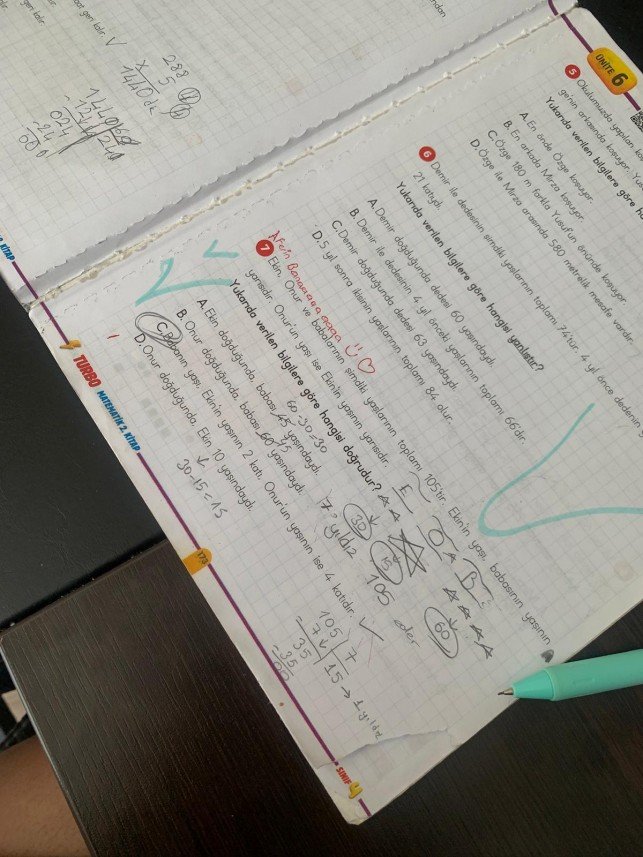 ÜNİTE 6
5 Okulumuzda yapılan
ge'nin arkasında koşuyor.
Yukarıda verilen bilgilere göre
A. En önde Özge koşuyor.
B. En arkada Mirza koşuyor.
C. Özge 180 m farkla Yusuf'un önünde koşuyor.
D. Özge ile Mirza arasında 580 metrelik mesafe vardır.
6 Demir ile dedesinin şimdiki yaşlarının toplamı 74'tür. 4 yıl önce dedesinin
21 katıydı.
Yukarıda verilen bilgilere göre hangisi yanlıştır?
A. Demir doğduğunda dedesi 60 yaşındaydı.
B. Demir ile dedesinin 4 yıl önceki yaşlarının toplamı 66'dır.
C. Demir doğduğunda dedesi 63 yaşındaydı.
D. 5 yıl sonra ikisinin yaşlarının toplamı 84 olur.
7 Ekin, Onur ve babalarının şimdiki yaşlarının toplamı 105'tir. Ekin'in yaşı, babasının yaşının
yarısıdır. Onur'un yaşı ise Ekin'in yaşının yarısıdır.
Yukarıda verilen bilgilere göre hangisi doğrudur?
A. Ekin doğduğunda, babası 45 yaşındaydı.
B. Onur doğduğunda, babası 60 yaşındaydı.
C. Babanın yaşı, Ekin'in yaşının 2 katı, Onur'un yaşının ise 4 katıdır.
D. Onur doğduğunda, Ekin 10 yaşındaydı.
60-30=30
45
30-15=15
E O B
7 yıldız
30
15
60
105
der
105 7
7 15 → 1 yıldız
35
-35
00
288
x 5
1440 dk
TURBO MATEMATİK 2. KİTAP
173
SINIF 4